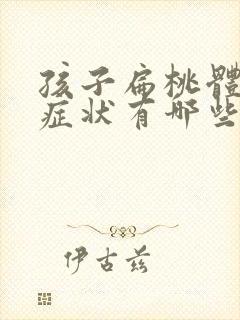 孩子扁桃體
症状有哪些
伊古兹